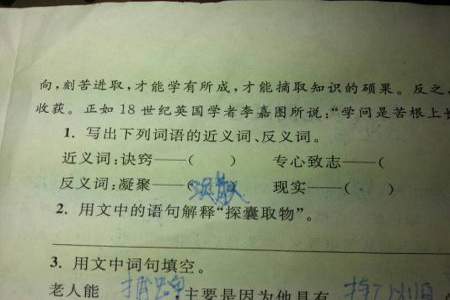 向,刻苦进取,才能学有所成,才能摘取知识的硕果。反之
收获。正如18世纪英国学者李嘉图所说:“学问是苦根上长
1. 写出下列词语的近义词、反义词。
近义词:诀窍——( ) 专心致志——(
反义词:凝聚——( 涣散 现实——( )
2. 用文中的语句解释“探囊取物”。
3. 用文中词句填空。
老人能 主要是因为他具有